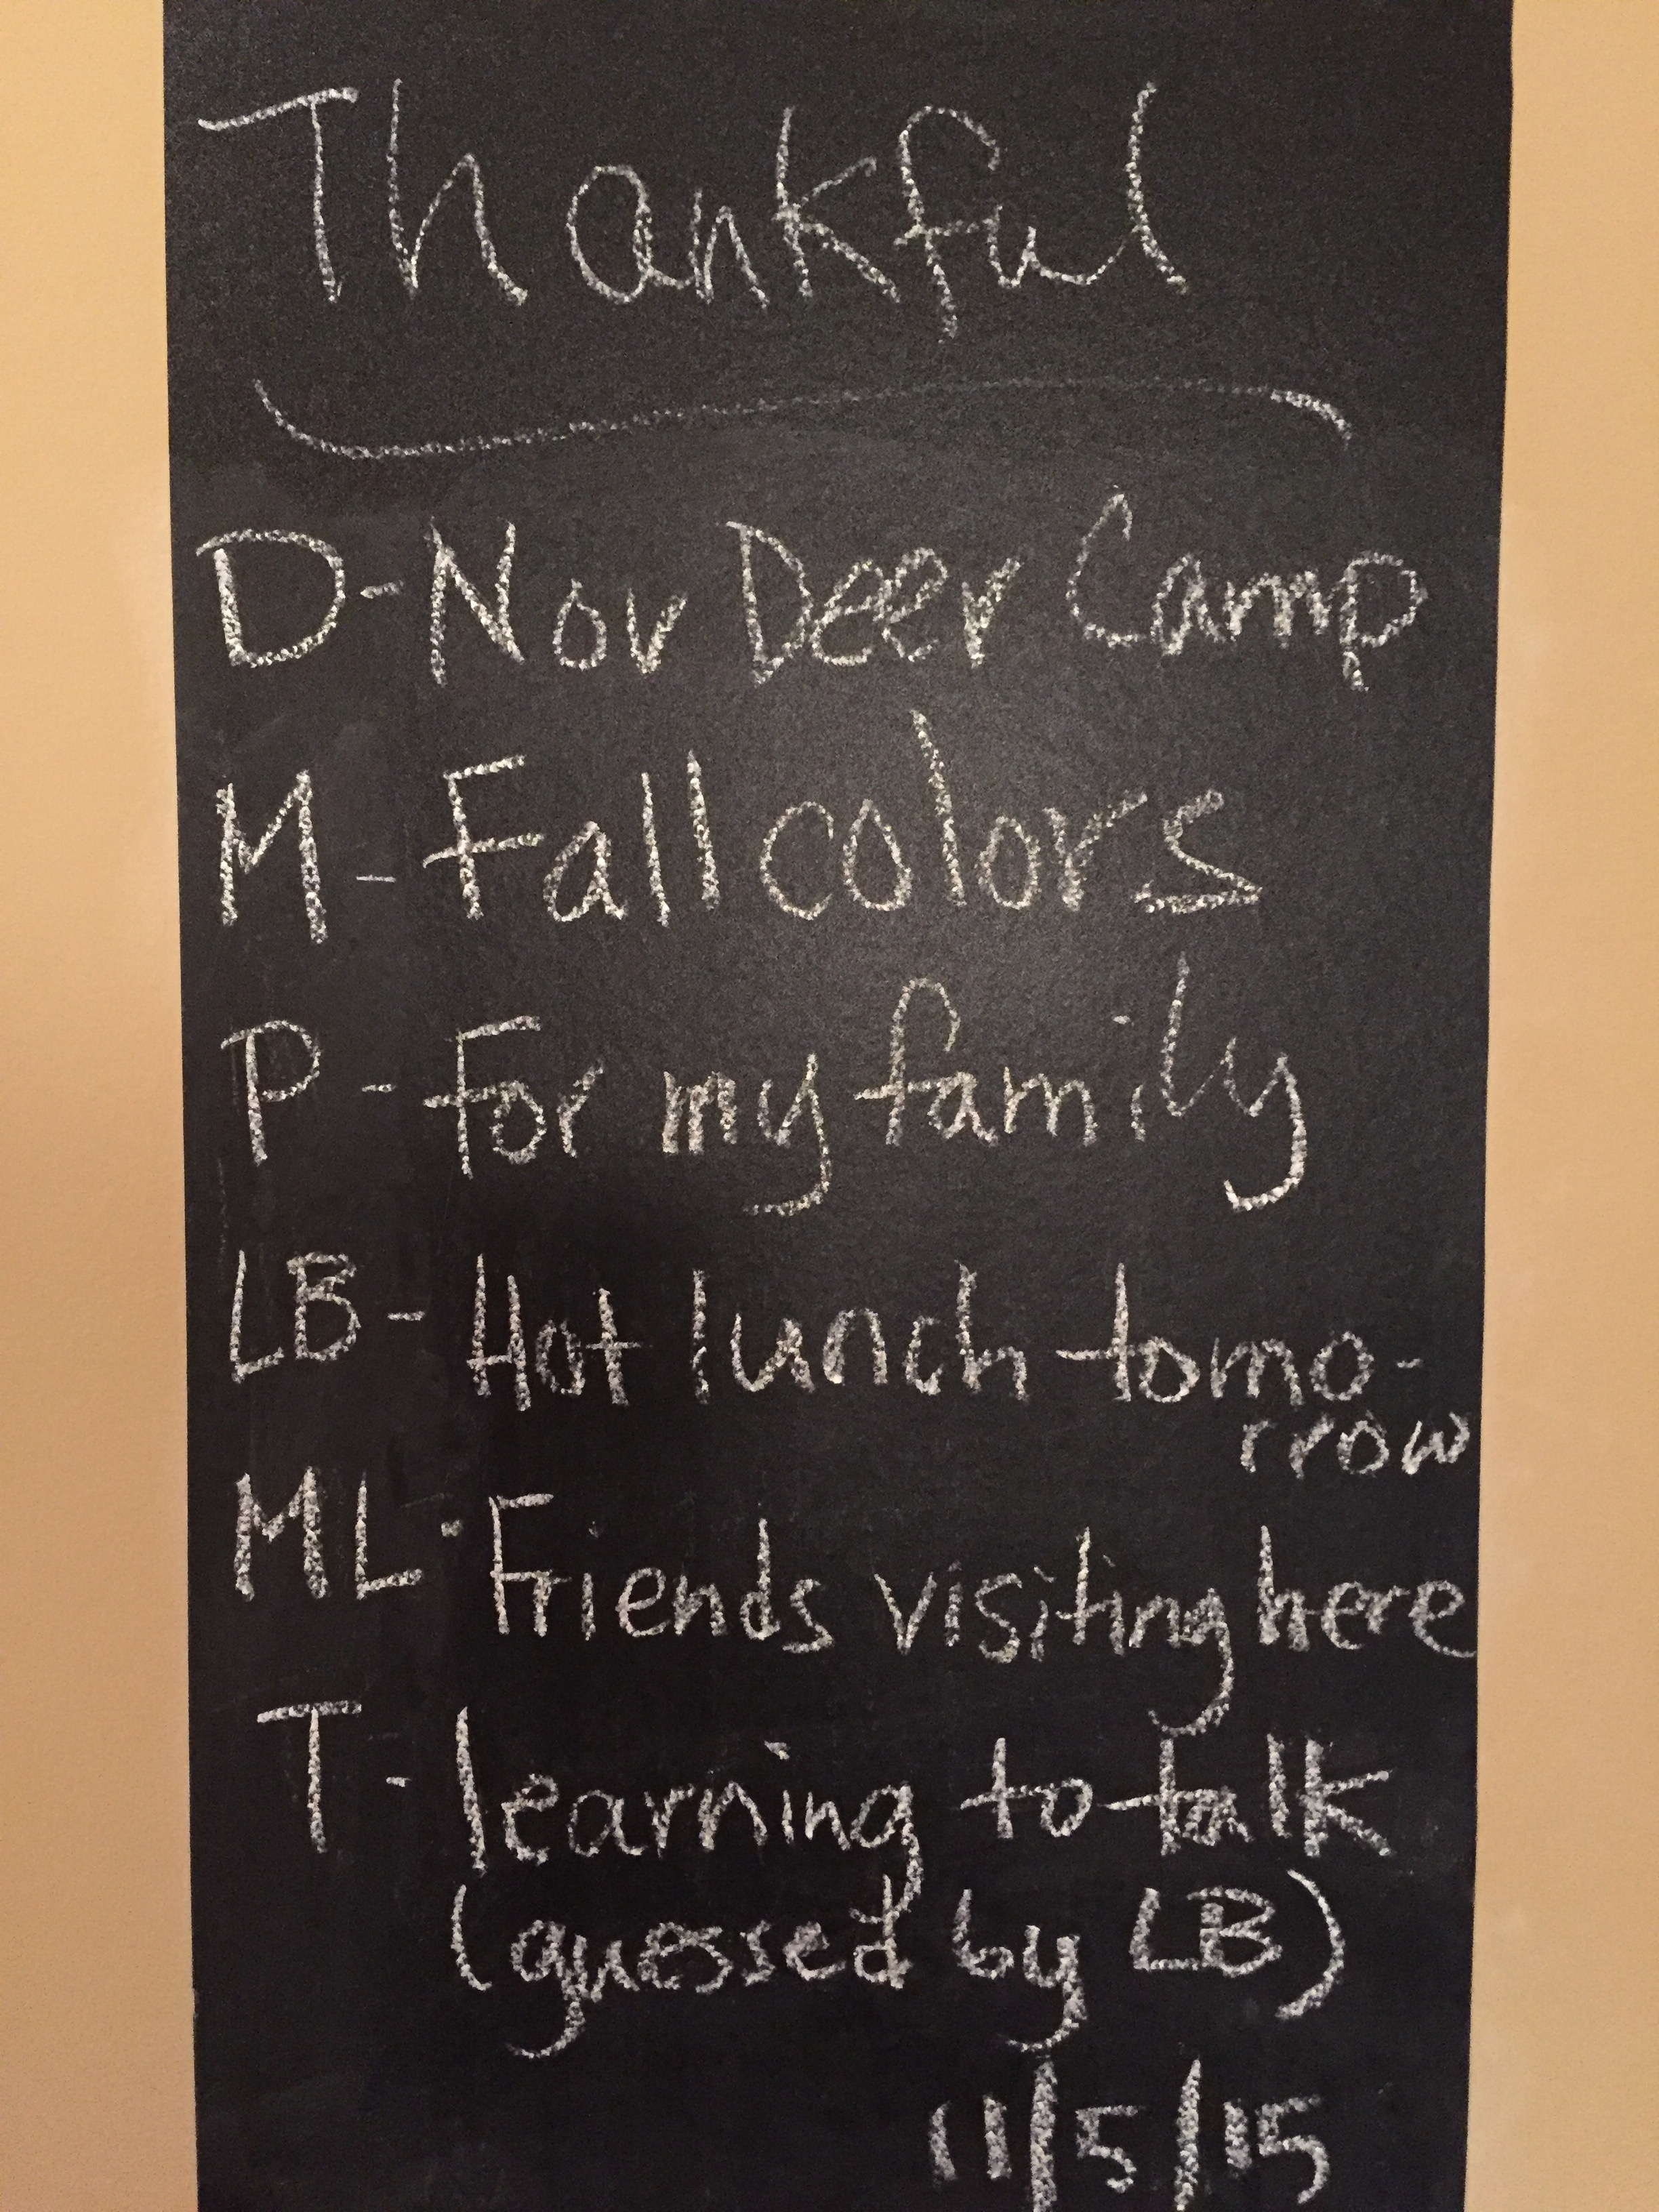 Thankful
D-Nov Deer Camp
M-Fall colors
P-For my family
LB-Hot lunch tomo-
rrow
ML-Friends visiting here
T-learning to talk
(guessed by LB)
11/5/15